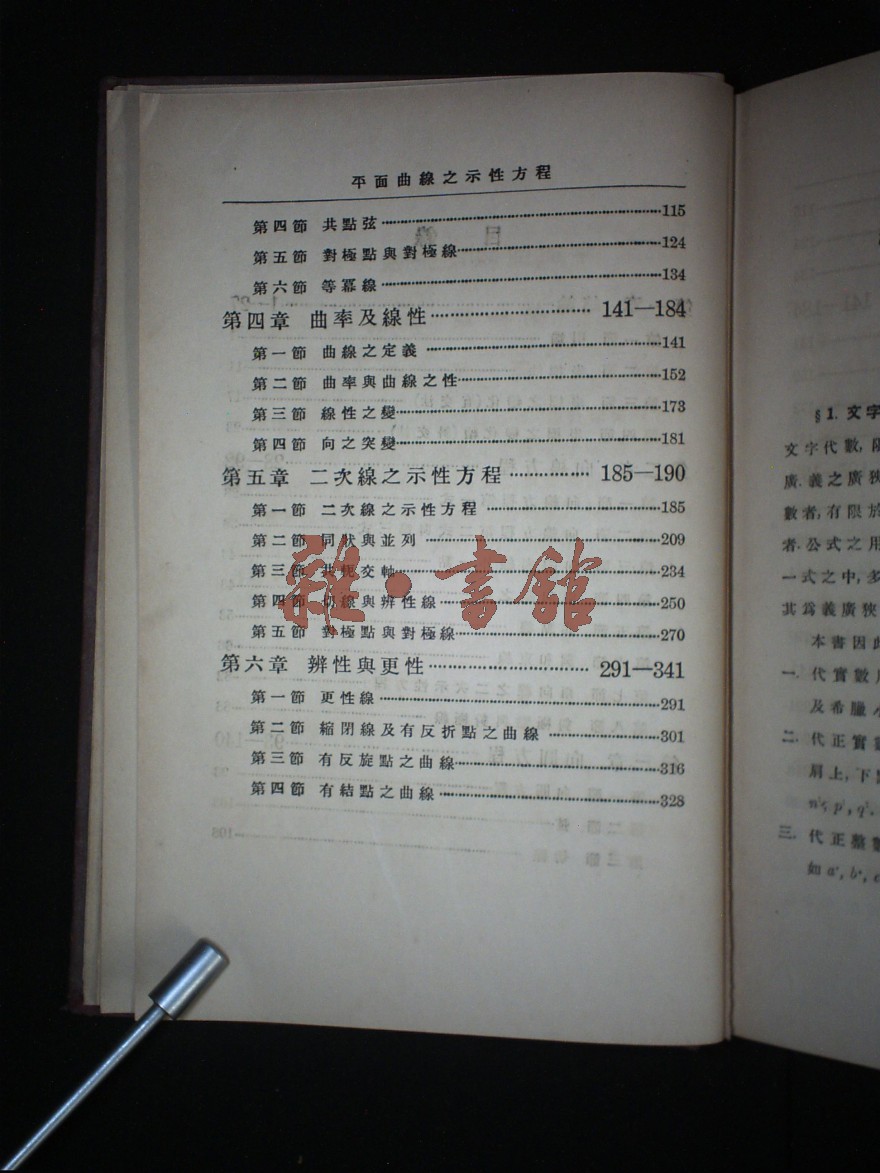 平面曲線之示性方程
第四節 共點弦 115
第五節 對極點與對極線 124
第六節 等冪線 134
第四章 曲率及線性 141—184
第一節 曲線之定義 141
第二節 曲率與曲線之性 152
第三節 線性之變 173
第四節 向之突變 181
第五章 二次線之示性方程 185—190
第一節 二次線之示性方程 185
第二節 同狀與並列 209
第三節 共軛交軸 234
第四節 切線與辨性線 250
第五節 對極點與對極線 270
第六章 辨性與更性 291—341
第一節 更性線 291
第二節 縮閉線及有反折點之曲線 301
第三節 有反旋點之曲線 316
第四節 有結點之曲線 328
雜·書館
§1. 文字
文字代數,
廣.義之廣狹
數者,有限於
者.公式之用
一式之中,多
其爲義廣狹
本書因此
一. 代實數
及希臘
二. 代正實
肩上,下
三. 代正整數